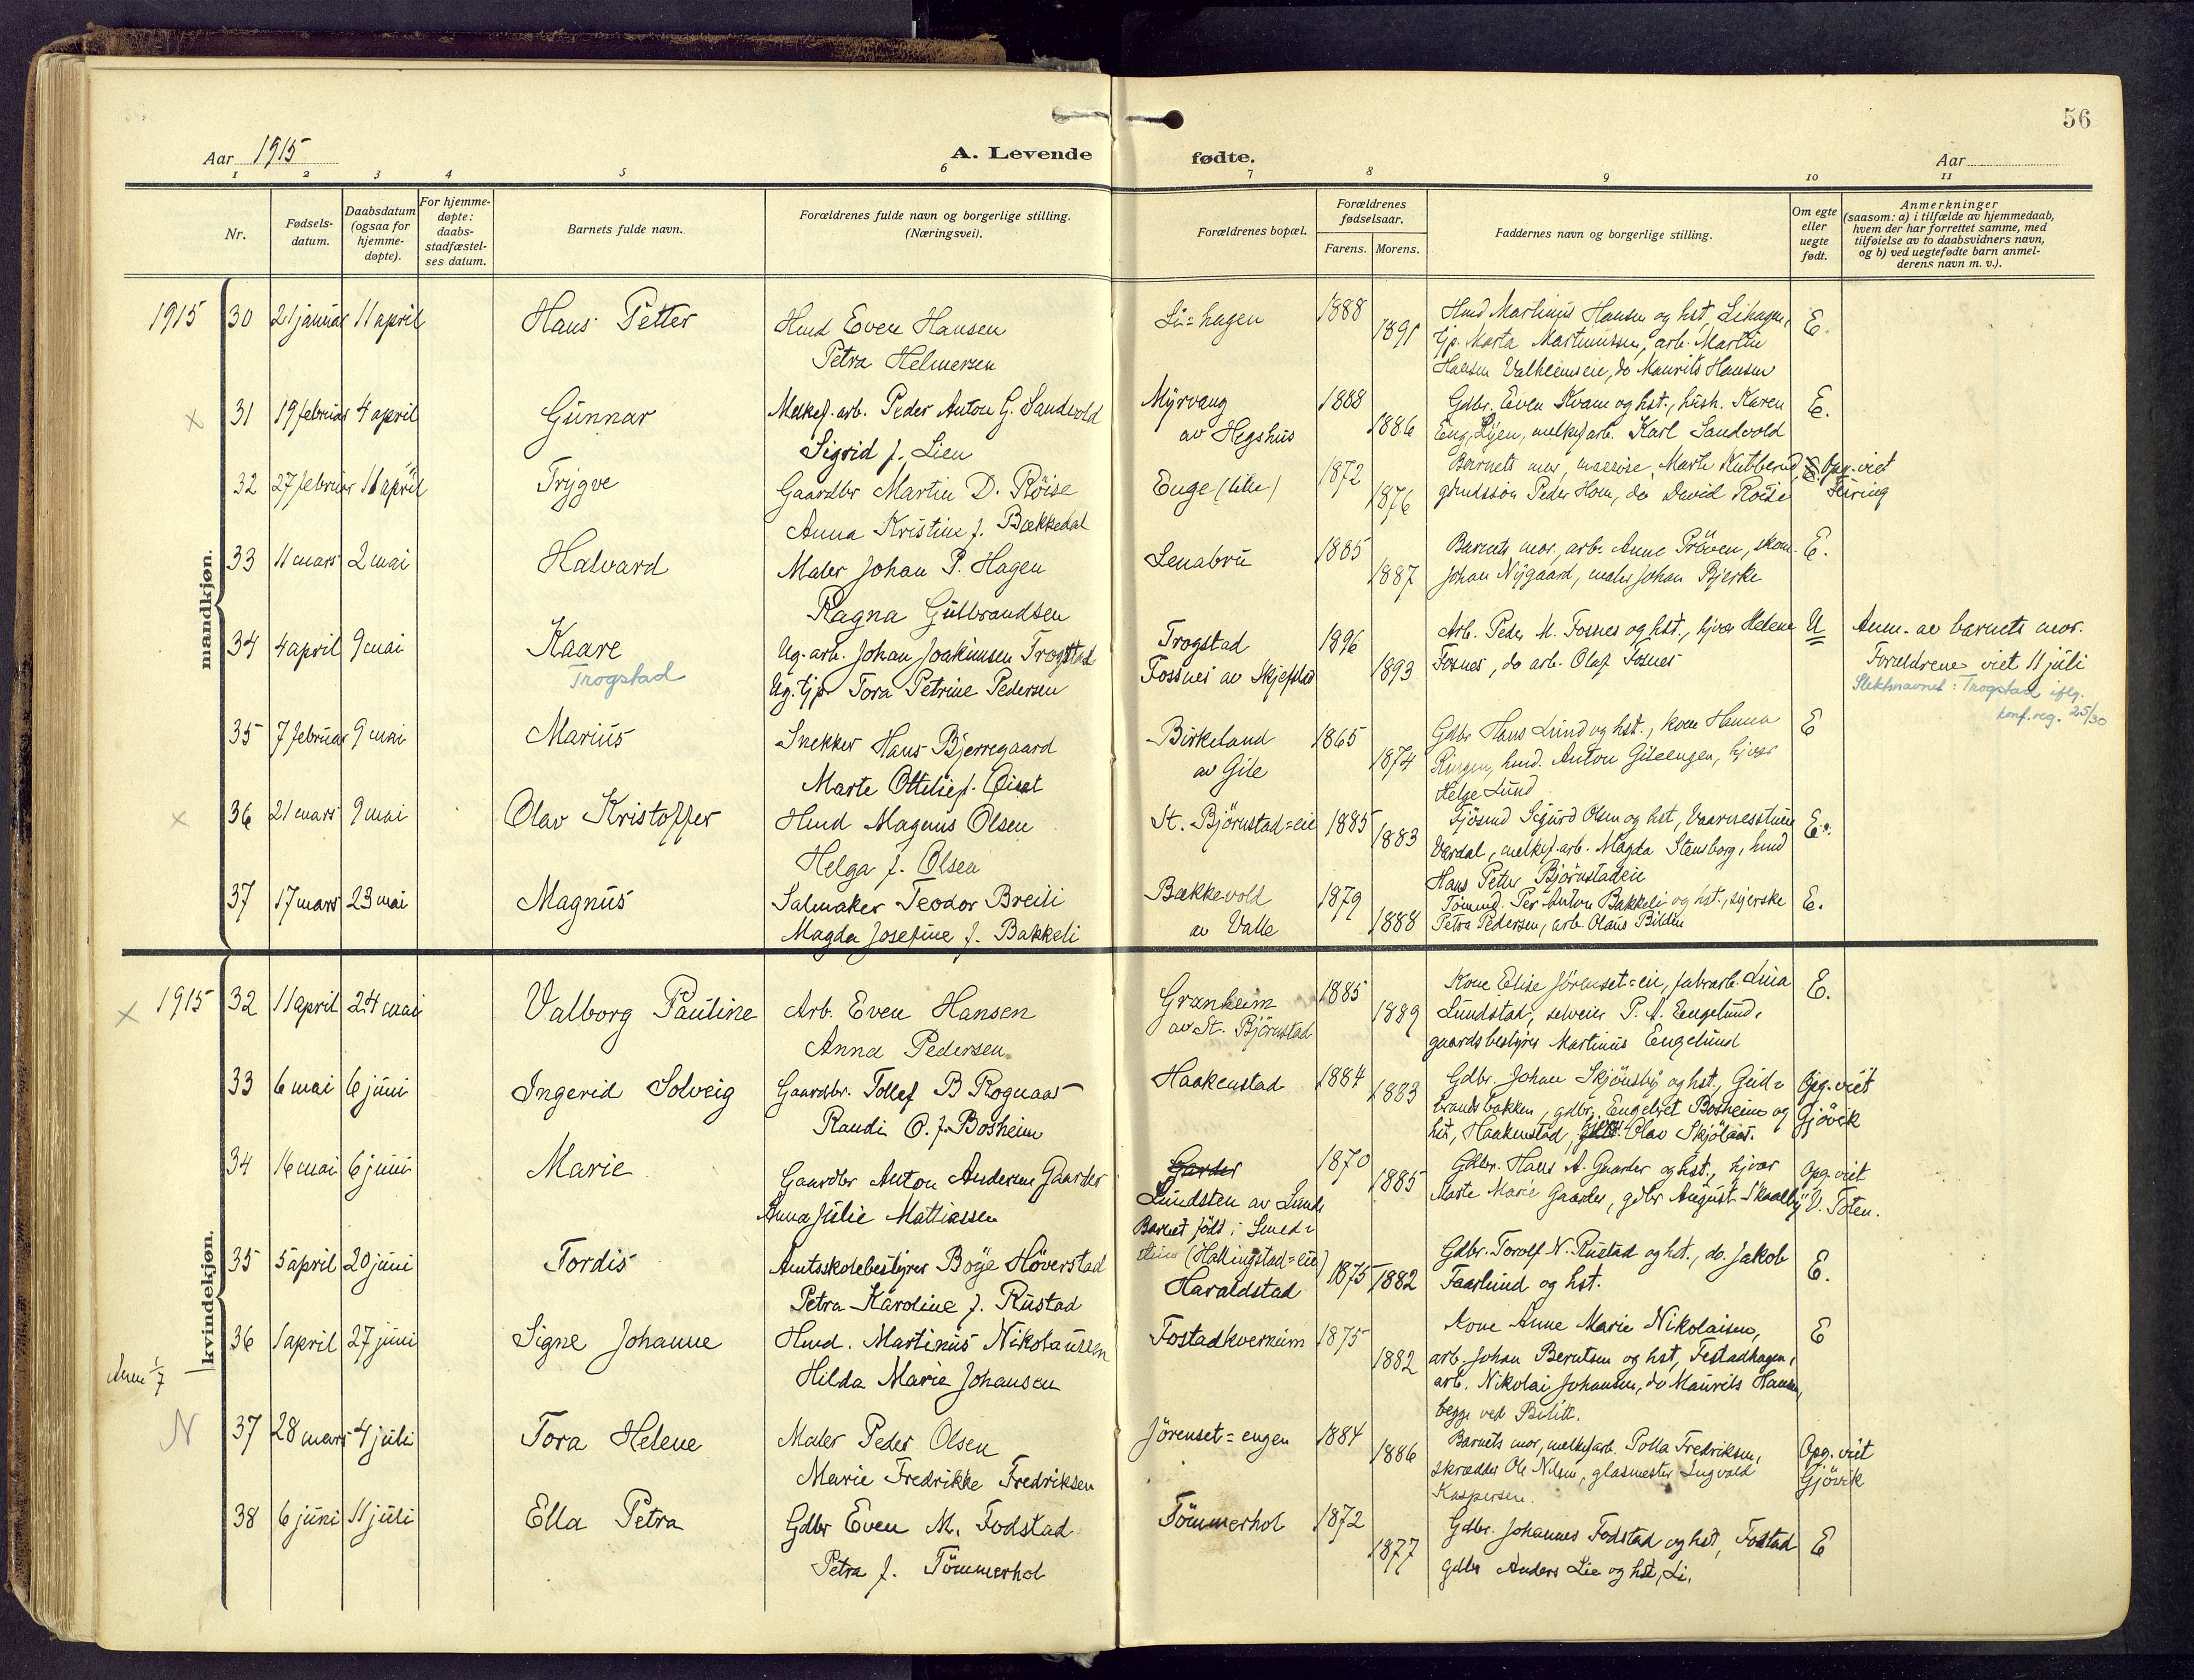 56
Aar 1915
A. Levende fødte.
Aar
1 2 3 4 5 6 7 8 9 10 11
Nr.
Fødsels-
datum.
Daabsdatum
(ogsaa for
hjemme-
døpte).
For hjemme-
døpte:
daabs-
stadfæstel-
ses datum.
Barnets fulde navn.
Forældrenes fulde navn og borgerlige stilling.
(Næringsvei).
Forældrenes bopæl.
Forældrenes
fødselsaar.
Farens. Morens.
Faddernes navn og borgerlige stilling.
Om egte
eller
uegte
født.
Anmerkninger
(saasom: a) i tilfælde av hjemmedaab,
hvem der har forrettet samme, med
tilføielse av to daabsvidners navn,
og b) ved uegtefødte barn anmel-
derens navn m. v.).
mandkjøn.
1915 30 21 januar 11 april Hans Petter
Hmd Even Hansen
Petra Helmersen
Li=hagen 1888 1891
Hmd Martinius Hansen og hst, Lihagen,
tjp. Marta Martinussen, arb. Martin
Hansen Valheimseie, do Maurits Hansen
E.
x 31 19 februar 4 april Gunnar
Melkef. arb. Peder Anton G. Sandvold
Sigrid f. Lien
Myrvang
av Hegshus
1888 1886
Gdbr. Even Kvam og hst., hush. Karen
Eng, Lien, melkef arb. Karl Sandvold
E.
32 27 februar 11 april Trygve
Gaardbr Martin D. Röise
Anna Kristine f. Bækkedal
Enge (lille) 1872 1876
Barnets mor, Marte Kubberud,
grndssön Peder Hom, do David Röise
E. Opg. viet
Feiring
33 11 mars 2 mai Halvard
Maler Johan P. Hagen
Ragna Gulbrandsen
Lenabru 1885 1887
Barnets mor, arb. Anne Pröven, skom.
Johan Nygaard, maler Johan Bjerke
E.
34 4 april 9 mai Kaare
Trogstad
Ug. arb. Johan Joakimsen Trogstad
Ug. tjp Tora Petrine Pedersen
Trogstad
Fossnes av Skjefstad
1896 1893
Arb. Peder M. Fosnes og hst., hjvær Helene
Fosnes, do arb. Olaf Fosnes
U
Anm. av barnets mor.
Foreldrene viet 11 juli
Slektsnavnet: Trogstad iflg.
konf.reg. 25/30
35 7 februar 9 mai Marius
Snekker Hans Bjerregaard
Marte Ottilie f.
Birkeland
av Gile
1865 1874
Gdbr Hans Lund og hst., kone Hanna
Ringen, hmd. Anton Gileengen, hjvær
Helge Lund
E
x 36 21 mars 9 mai Olav Kristoffer
Hmd Magnus Olsen
Helga f. Olsen
St. Björnstad=eie 1885 1883
Fjösmd Sigurd Olsen og hst, Vaarnesstuen
Vardal, melkef.arb. Magda Stensborg, hmd
Hans Peter Björnstadeie
E.
37 17 mars 23 mai Magnus
Salmaker Teodor Breili
Magda Josefine f. Bakkeli
Bækkevold
av Valle
1879 1888
Tömmd. Per Anton Bakkeli og hst., syerske
Petra Pedersen, arb. Olaus Bilden
E.
kvindekjøn.
x 1915 32 11 april 24 mai Valborg Pauline
Arb. Even Hansen
Anna Pedersen
Granheim
av St. Björnstad
1885 1889
Kone Elise Jörenset=eie, fabrarb. Lina
Lundstad, selveier P. A. Engelund,
gaardsbestyrer Martinius Engelund
E.
33 6 mai 6 juni Ingerid Solveig
Gaardbr. Tollef B Rognaas
Randi O. f. Bosheim
Haakenstad 1884 1883
Gdbr. Johan Skjönsby og hst., Gud=
brandsbakken, gdbr. Engebret Bosheim og
hst, Haakenstad, Olav Skjölaas.
Opg. viet
Gjövik
34 16 mai 6 juni Marie
Gaardbr Anton Andersen Gaarder
Anna Julie Mattiassen
Garder
Lundsten av Lunde
Barnet födt i Smed=
stuen (Hallingstad=eie)
1870 1885
Gdbr. Hans A. Gaarder og hst., hjvær
Marte Marie Gaarder, gdbr August Skaalby
Opg. viet
V. Toten.
35 5 april 20 juni Tordis
Amtsskolebestyrer Boye Höverstad
Petra Karoline f. Rustad
Haraldstad 1875 1882
Gdbr. Torolf N. Rustad og hst., do. Jakob
Faarlund og hst.
E.
36 1 april 27 juni Signe Johanne
Hmd. Martinus Nikolaussen
Hilda Marie Johansen
Fostadkvernum 1875 1882
Kone Anne Marie Nikolaisen,
arb. Johan Berntsen og hst, Festadhagen,
arb. Nikolai Johansen, do Maurits Hansen,
begge ved Bilitt.
E
Anm 1/7
N 37 28 mars 4 juli Tora Helene
Maler Peder Olsen
Marie Fredrikke Fredriksen
Jörenset=engen 1884 1886
Barnets mor, melkefarb. Polla Fredriksen,
skrædder Ole Nilsen, glasmester Ingvald
Kaspersen.
Opg. viet
Gjövik
38 6 juni 11 juli Ella Petra
Gdbr Even M. Fodstad
Petra f. Tömmerhol
Tömmerhol 1872 1877
Gdbr. Johannes Fodstad og hst, Fodstad
gdbr Anders Lie og hst, Li.
E